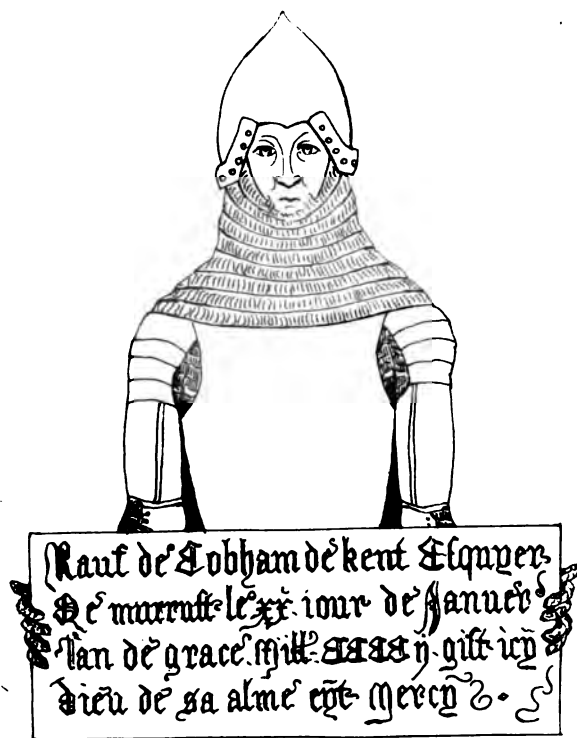 Rauf de Cobham de kent Esquyer
Qe murrust le xx iour de Januer
lan de grace Mill CCCC ij gist icy
dieu de sa alme eyt mercy